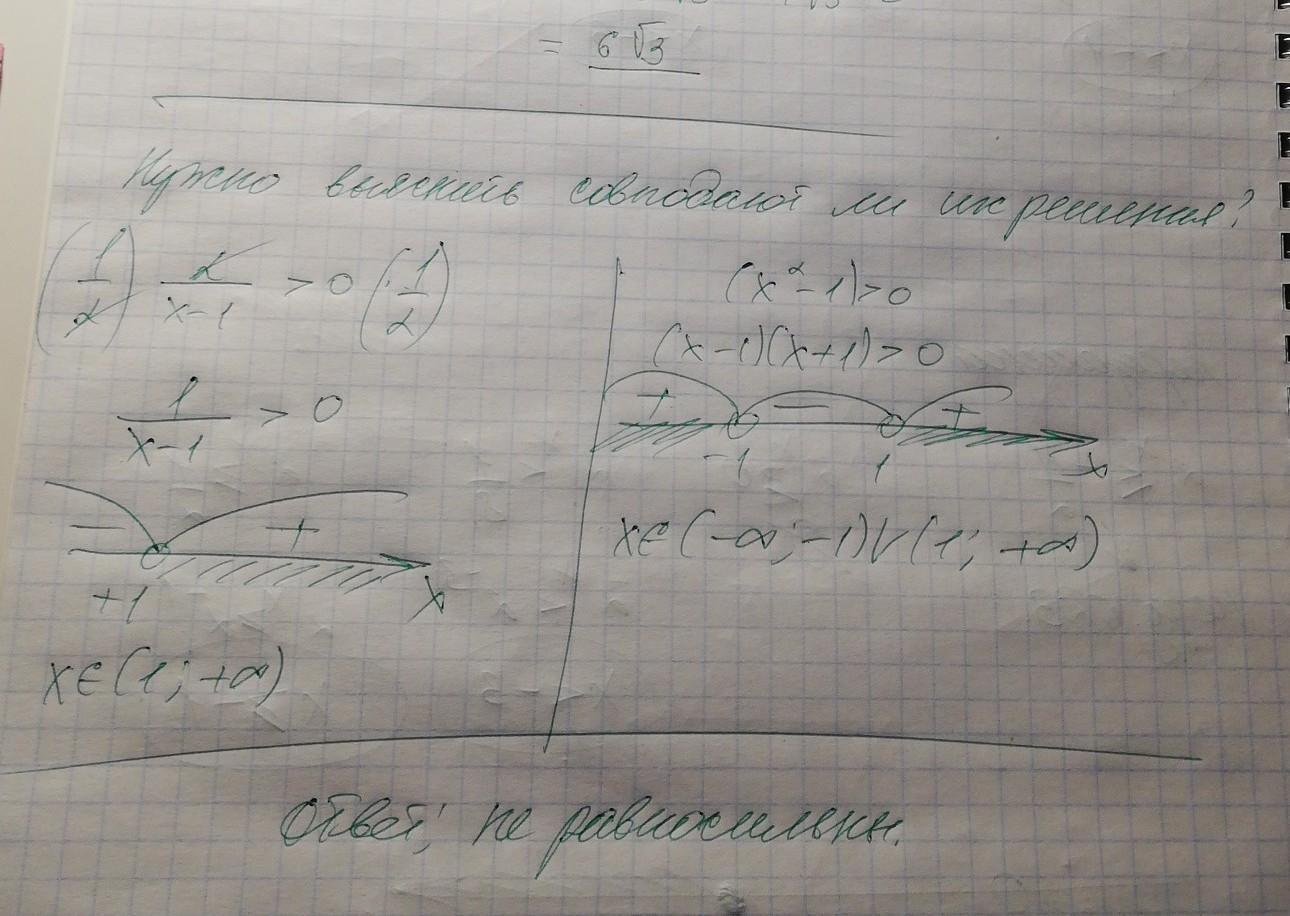 = 6√3
Нужно выяснить совподают ли их решения?
(1/2) 2/(x-1) > 0 (·1/2)
1/(x-1) > 0
- +
+1 x
x∈(1; +∞)
(x²-1)>0
(x-1)(x+1)>0
+ - +
-1 1 x
x∈(-∞;-1)∨(1; +∞)
Ответ; не равносильны.